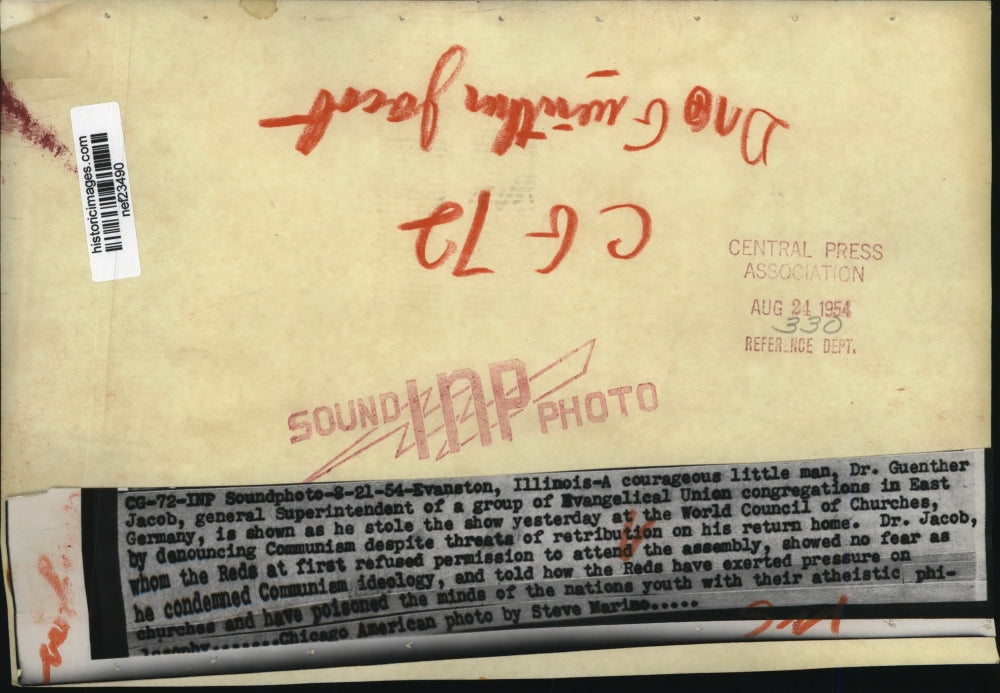 historicimages.com
nef23490
Dr. Guenther Jacob
CG 72
CENTRAL PRESS
ASSOCIATION
AUG 21 1954
330
REFERENCE DEPT.
SOUND INP PHOTO
CG-72-INP Soundphoto-8-21-54-Evanston, Illinois-A courageous little man, Dr. Guenther
Jacob, general Superintendent of a group of Evangelical Union congregations in East
Germany, is shown as he stole the show yesterday at the World Council of Churches,
by denouncing Communism despite threats of retribution on his return home. Dr. Jacob,
whom the Reds at first refused permission to attend the assembly, showed no fear as
he condemned Communism ideology, and told how the Reds have exerted pressure on
churches and have poisoned the minds of the nations youth with their atheistic phi-
losophy.......Chicago American photo by Steve Marino.....